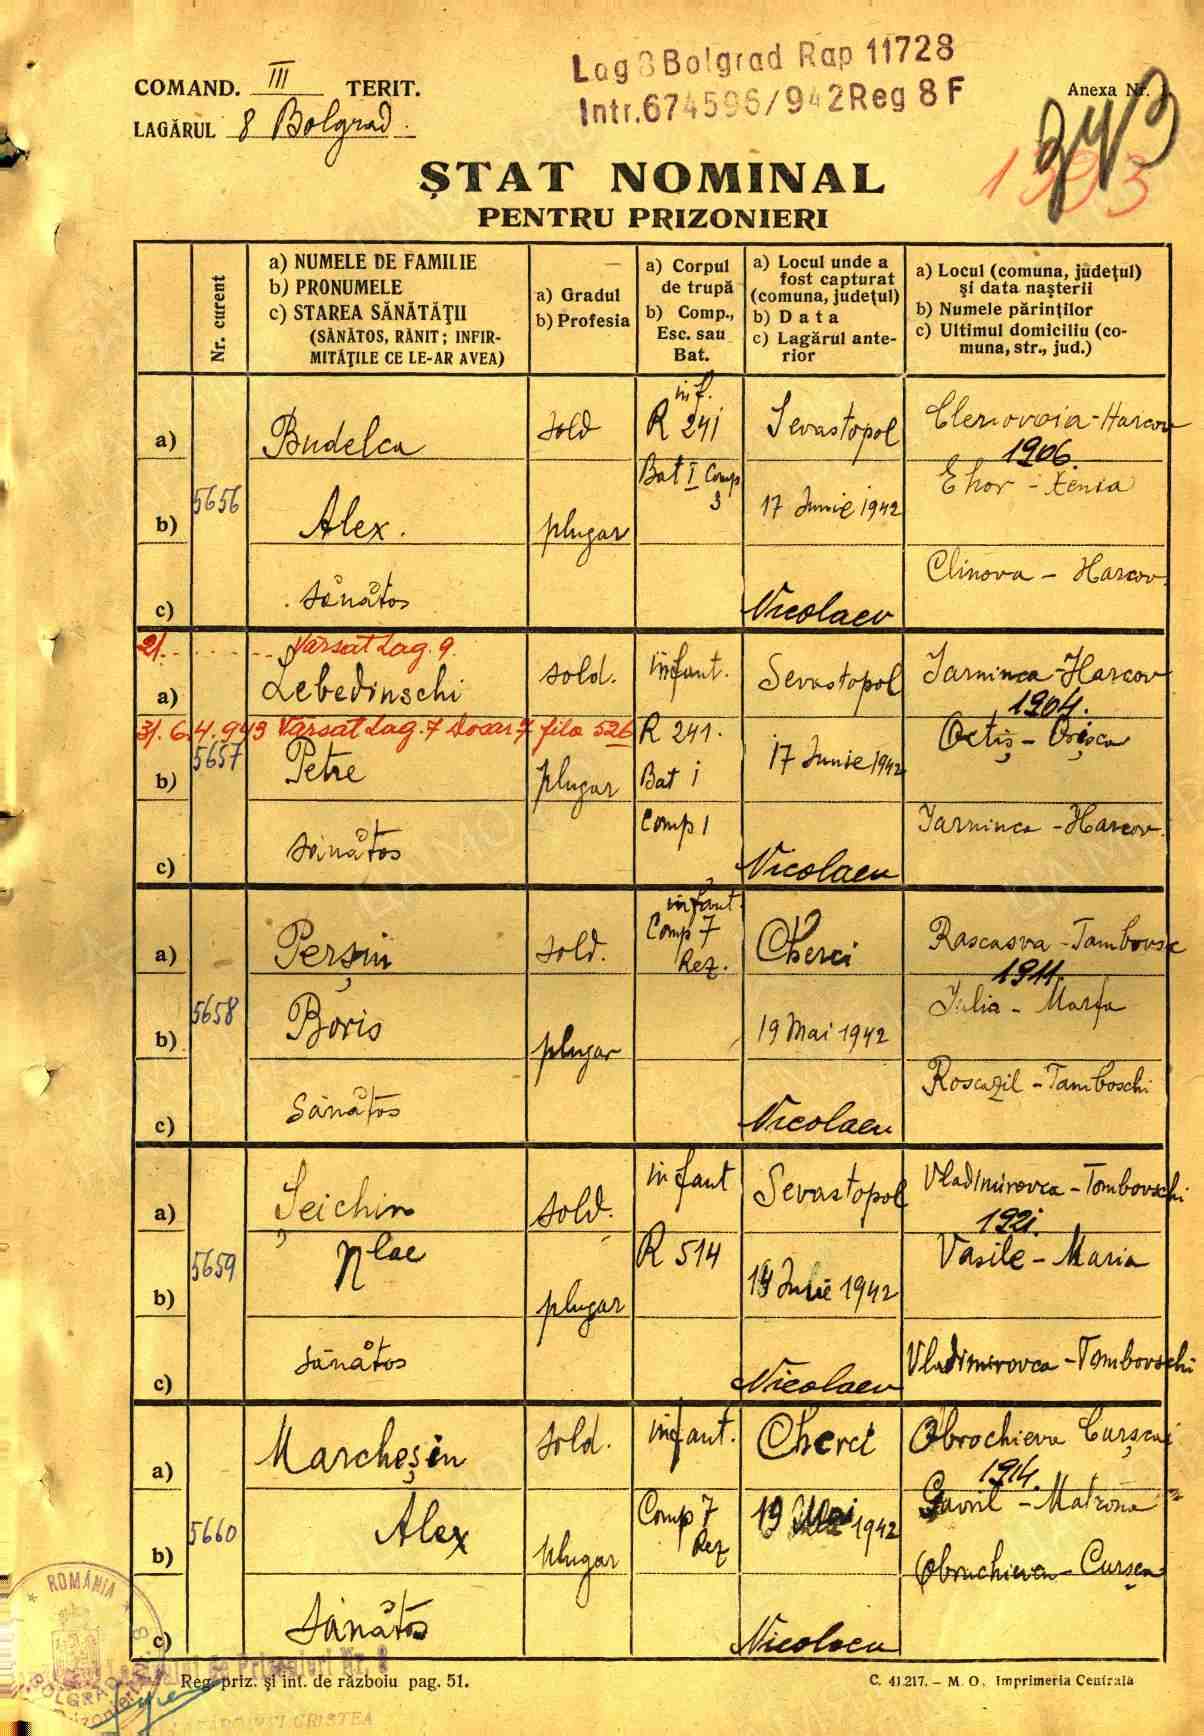 Lag 8 Bolgrad Rap 11728
Intr. 674596/942 Reg 8 F
COMAND. III TERIT.
Anexa Nr.
LAGĂRUL 8 Bolgrad.
243
1393
ȘTAT NOMINAL
PENTRU PRIZONIERI
Nr. curent
a) NUMELE DE FAMILIE
b) PRONUMELE
c) STAREA SĂNĂTĂȚII
(SĂNĂTOS, RĂNIT; INFIR-
MITĂȚILE CE LE-AR AVEA)
a) Gradul
b) Profesia
a) Corpul
de trupă
b) Comp.,
Esc. sau
Bat.
a) Locul unde a
fost capturat
(comuna, județul)
b) Data
c) Lagărul ante-
rior
a) Locul (comuna, județul)
și data nașterii
b) Numele părinților
c) Ultimul domiciliu (co-
muna, str., jud.)
5656
a) Budelca
sold
inf.
R 241
Sevastopol
1906.
b) Alex.
plugar
Bat I Comp
3
17 Iunie 1942
Ehor - Xenia
c) sănătos
Nicolaev
Clinova - Harcov.
2). Vărsat Lag. 9.
5657
a) Lebedinschi
sold.
infant.
Sevastopol
Iarninca - Harcov
1904.
3). 6.4.943 Vărsat Lag. 7 Dosar 7 fila 526
b) Petre
plugar
R 241.
Bat I
17 Iunie 1942
c) sănătos
Comp 1
Nicolaev
Iarninca - Harcov.
5658
a) Perșin
sold.
infant.
Comp 7
Rez.
Cherci
Rascasva - Tambovsc
1911.
b) Boris
plugar
19 Mai 1942
Iulia - Marfa
c) Sănătos
Nicolaev
Roscazil - Tamboschi
5659
a) Șeichin
sold.
infant
Sevastopol
Vladimirovca - Tombovschi
1921.
b) Nlae
plugar
R 514
Iulie 1942
Vasile - Maria
c) sănătos
Nicolaev
Vladimirovca - Tombovschi
5660
a) Marcheșin
sold.
infant.
Cherci
Obrochieva Curșcai
1914.
b) Alex
plugar
Comp 7
Rez
19 Mai 1942
Gavril - Matrona
c) Sănătos
Nicolaev
Obruchieva - Curșca
ROMÂNIA
BOLGRAD
Lagărul de Prizonieri Nr. 8
Reg. priz. și int. de războiu pag. 51.
C. 41.217. – M. O. Imprimeria Centrală
CRISTEA